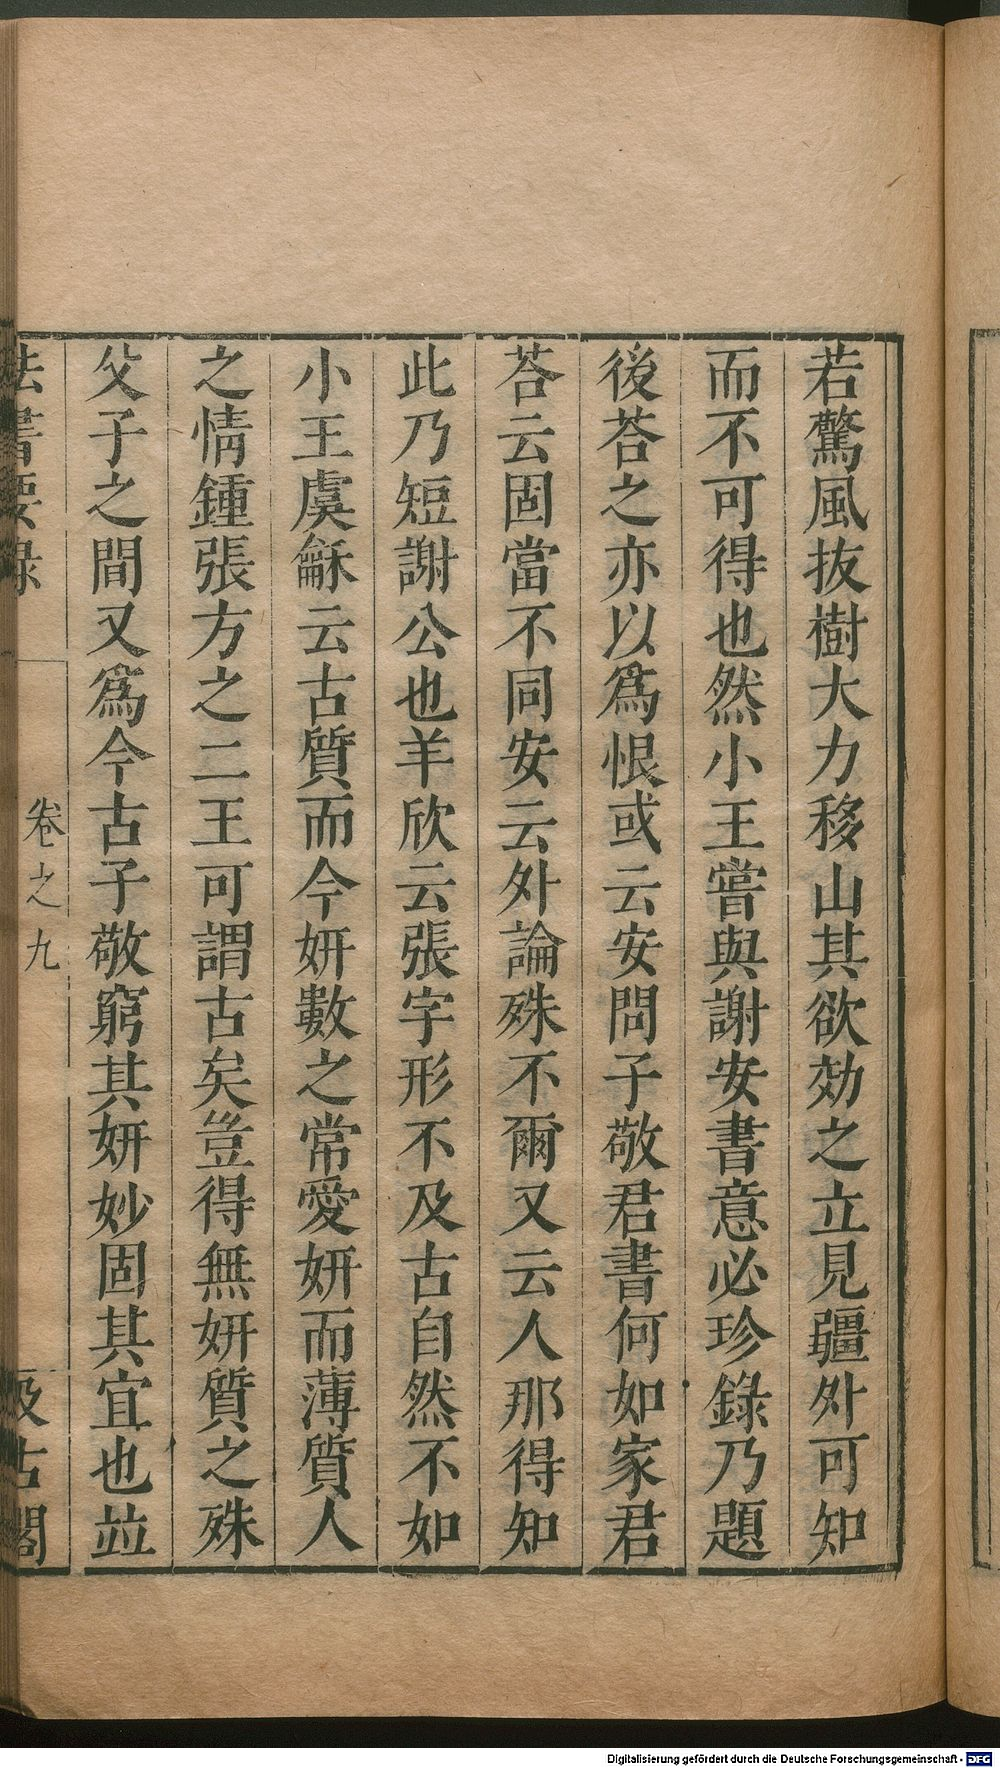 若驚風拔樹大力移山其欲効之立見疆外可知
而不可得也然小王嘗與謝安書意必珍錄乃題
後荅之亦以爲恨或云安問子敬君書何如家君
荅云固當不同安云外論殊不爾又云人那得知
此乃短謝公也羊欣云張字形不及古自然不如
小王虞龢云古質而今妍數之常愛妍而薄質人
之情鍾張方之二王可謂古矣豈得無妍質之殊
父子之間又爲今古子敬窮其妍妙固其宜也竝
法書要錄 卷之九 汲古閣
Digitalisierung gefördert durch die Deutsche Forschungsgemeinschaft - DFG